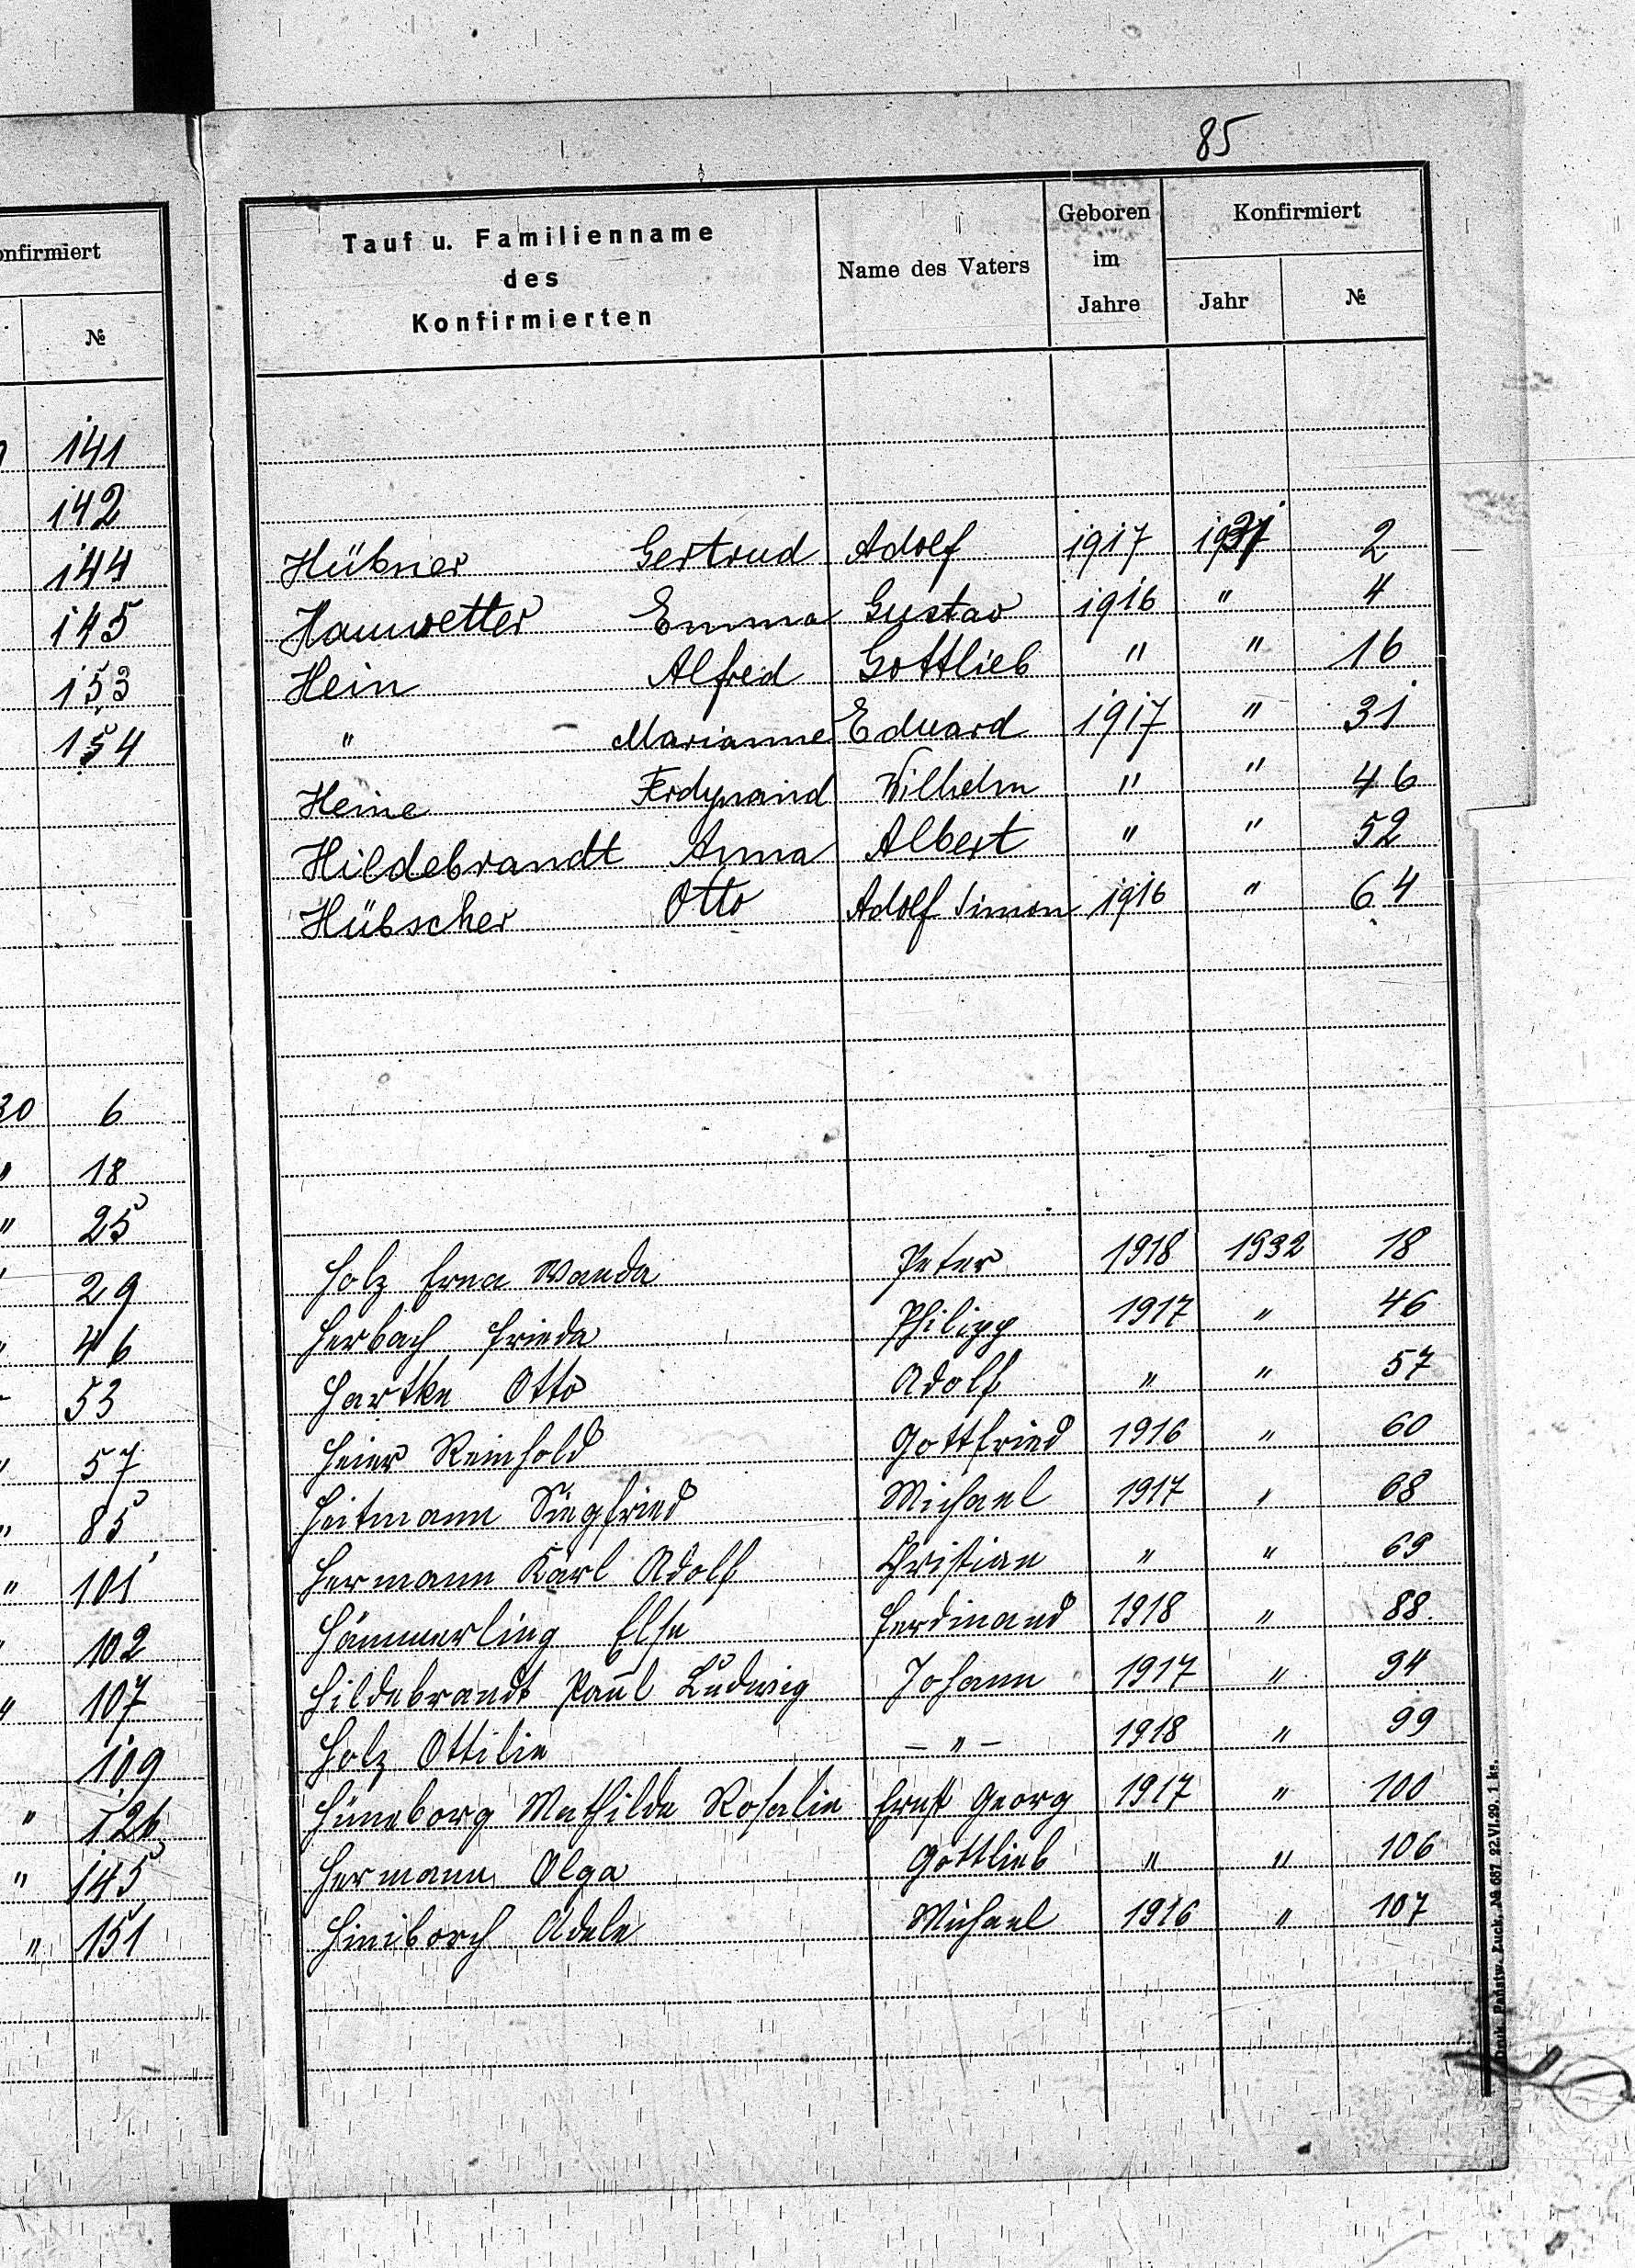 85
onfirmiert
№
141
142
144
145
153
154
30 6
" 18
" 25
" 29
" 46
53
" 57
" 85
" 101
" 102
" 107
109
" 126
" 145
" 151
Tauf u. Familienname des Konfirmierten | Name des Vaters | Geboren im Jahre | Konfirmiert
Jahr | №
Hübner Gertrud Adolf 1917 1931 2
Hauwetter Emma Gustav 1916 " 4
Hein Alfred Gottlieb " " 16
" Marianne Eduard 1917 " 31
Heine Ferdynand Wilhelm " " 46
Hildebrandt Anna Albert " " 52
Hübscher Otto Adolf Simon 1916 " 64
Holz Erna Wanda Peter 1918 1932 18
Herbach Frieda Philipp 1917 " 46
Hartke Otto Adolf " " 57
Heier Reinhold Gottfried 1916 " 60
Heitmann Siegfried Michael 1917 " 68
Hermann Karl Adolf Christian " " 69
Hämmerling Else Ferdinand 1918 " 88
Hildebrandt Paul Ludwig Johann 1917 " 94
Holz Ottilie – " – 1918 " 99
Hüneborg Mathilde Rosalie Ernst Georg 1917 " 100
Hermann Olga Gottlieb " " 106
Hiniborch Adele Michael 1916 " 107
Druk. Państw. Łuck. № 667 22.VI.29. 1 ks.